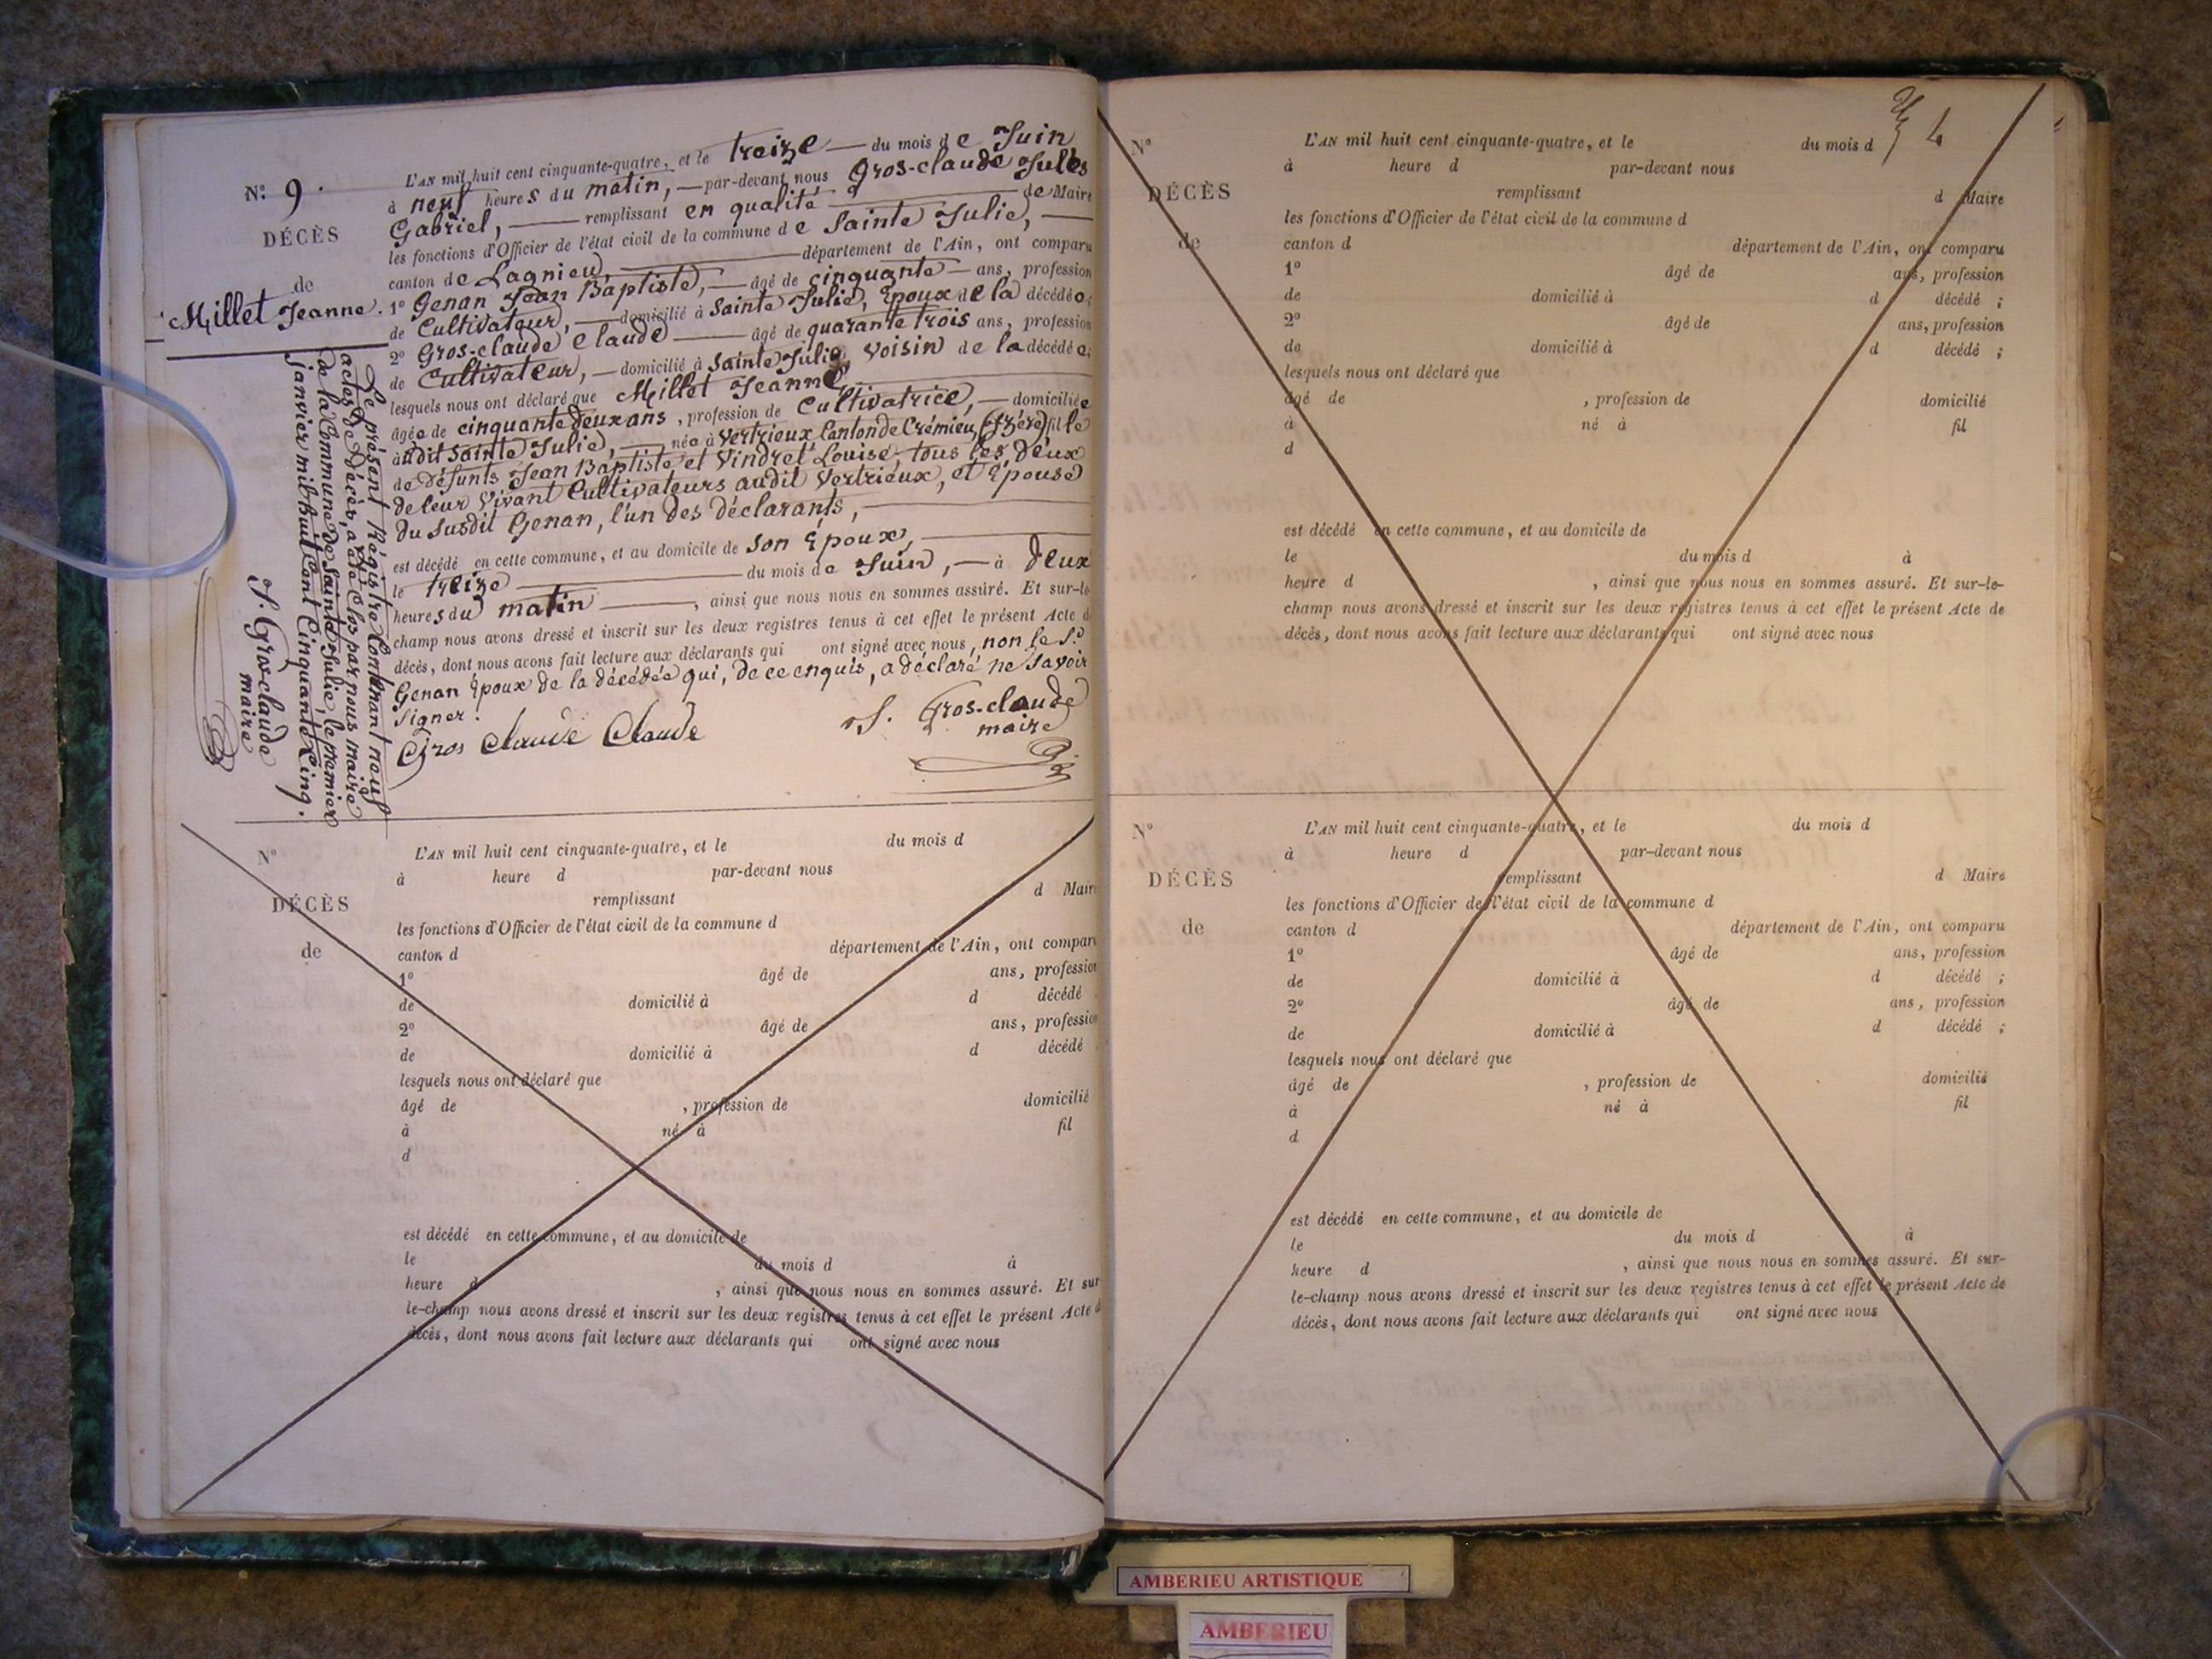 N.º 9.
DÉCÈS
de
Millet Jeanne.
L'AN mil huit cent cinquante-quatre, et le treize — du mois de Juin
à neuf heures du matin, — par-devant nous Gros-claude Jules
Gabriel, — remplissant en qualité de Maire
les fonctions d'Officier de l'état civil de la commune de Sainte Julie, —
canton de Lagnieu, — département de l'Ain, ont comparu
1º Genan Jean Baptiste, — âgé de cinquante — ans, profession
de Cultivateur, — domicilié à Sainte Julie, Époux de la décédée;
2º Gros-claude Claude — âgé de quarante trois ans, profession
de Cultivateur, — domicilié à Sainte Julie, voisin de la décédée;
lesquels nous ont déclaré que Millet Jeanne,
âgée de cinquante deux ans, profession de Cultivatrice, — domiciliée
audit Sainte Julie, — née à Vertrieux Canton de Crémieu, (Isère) fille
de Défunts Jean Baptiste et Vindret Louise, tous les deux
de leur Vivant Cultivateurs audit Vertrieux, et Épouse
du susdit Genan, l'un des déclarants, —
est décédé en cette commune, et au domicile de son Époux, —
le treize — du mois de Juin, — à deux
heures du matin —, ainsi que nous nous en sommes assuré. Et sur-le-
champ nous avons dressé et inscrit sur les deux registres tenus à cet effet le présent Acte d
décès, dont nous avons fait lecture aux déclarants qui ont signé avec nous, non le S.r
Genan Époux de la décédée qui, de ce enquis, a déclaré ne savoir
signer.
Gros Claude Claude
J. Gros-claude
maire
Le présent Régistre Contenant neuf
actes de Décès, a été Clos par nous maire
de la Commune de Sainte Julie, le premier
janvier mil huit Cent Cinquante Cinq.
J. Gros-claude
maire
Nº
DÉCÈS
de
L'AN mil huit cent cinquante-quatre, et le du mois d
à heure d par-devant nous
remplissant d Maire
les fonctions d'Officier de l'état civil de la commune d
canton d département de l'Ain, ont comparu
1º âgé de ans, profession
de domicilié à d décédé
2º âgé de ans, profession
de domicilié à d décédé
lesquels nous ont déclaré que
âgé de , profession de domicilié
à né à fil
d
est décédé en cette commune, et au domicile de
le du mois d à
heure d , ainsi que nous nous en sommes assuré. Et sur
le-champ nous avons dressé et inscrit sur les deux registres tenus à cet effet le présent Acte d
décès, dont nous avons fait lecture aux déclarants qui ont signé avec nous
4
Nº
DÉCÈS
de
L'AN mil huit cent cinquante-quatre, et le du mois d
à heure d par-devant nous
remplissant d Maire
les fonctions d'Officier de l'état civil de la commune d
canton d département de l'Ain, ont comparu
1º âgé de ans, profession
de domicilié à d décédé ;
2º âgé de ans, profession
de domicilié à d décédé ;
lesquels nous ont déclaré que
âgé de , profession de domicilié
à né à fil
d
est décédé en cette commune, et au domicile de
le du mois d à
heure d , ainsi que nous nous en sommes assuré. Et sur-le-
champ nous avons dressé et inscrit sur les deux registres tenus à cet effet le présent Acte de
décès, dont nous avons fait lecture aux déclarants qui ont signé avec nous
Nº
DÉCÈS
de
L'AN mil huit cent cinquante-quatre, et le du mois d
à heure d par-devant nous
remplissant d Maire
les fonctions d'Officier de l'état civil de la commune d
canton d département de l'Ain, ont comparu
1º âgé de ans, profession
de domicilié à d décédé ;
2º âgé de ans, profession
de domicilié à d décédé ;
lesquels nous ont déclaré que
âgé de , profession de domicilié
à né à fil
d
est décédé en cette commune, et au domicile de
le du mois d à
heure d , ainsi que nous nous en sommes assuré. Et sur-
le-champ nous avons dressé et inscrit sur les deux registres tenus à cet effet le présent Acte de
décès, dont nous avons fait lecture aux déclarants qui ont signé avec nous
AMBERIEU ARTISTIQUE
AMBERIEU